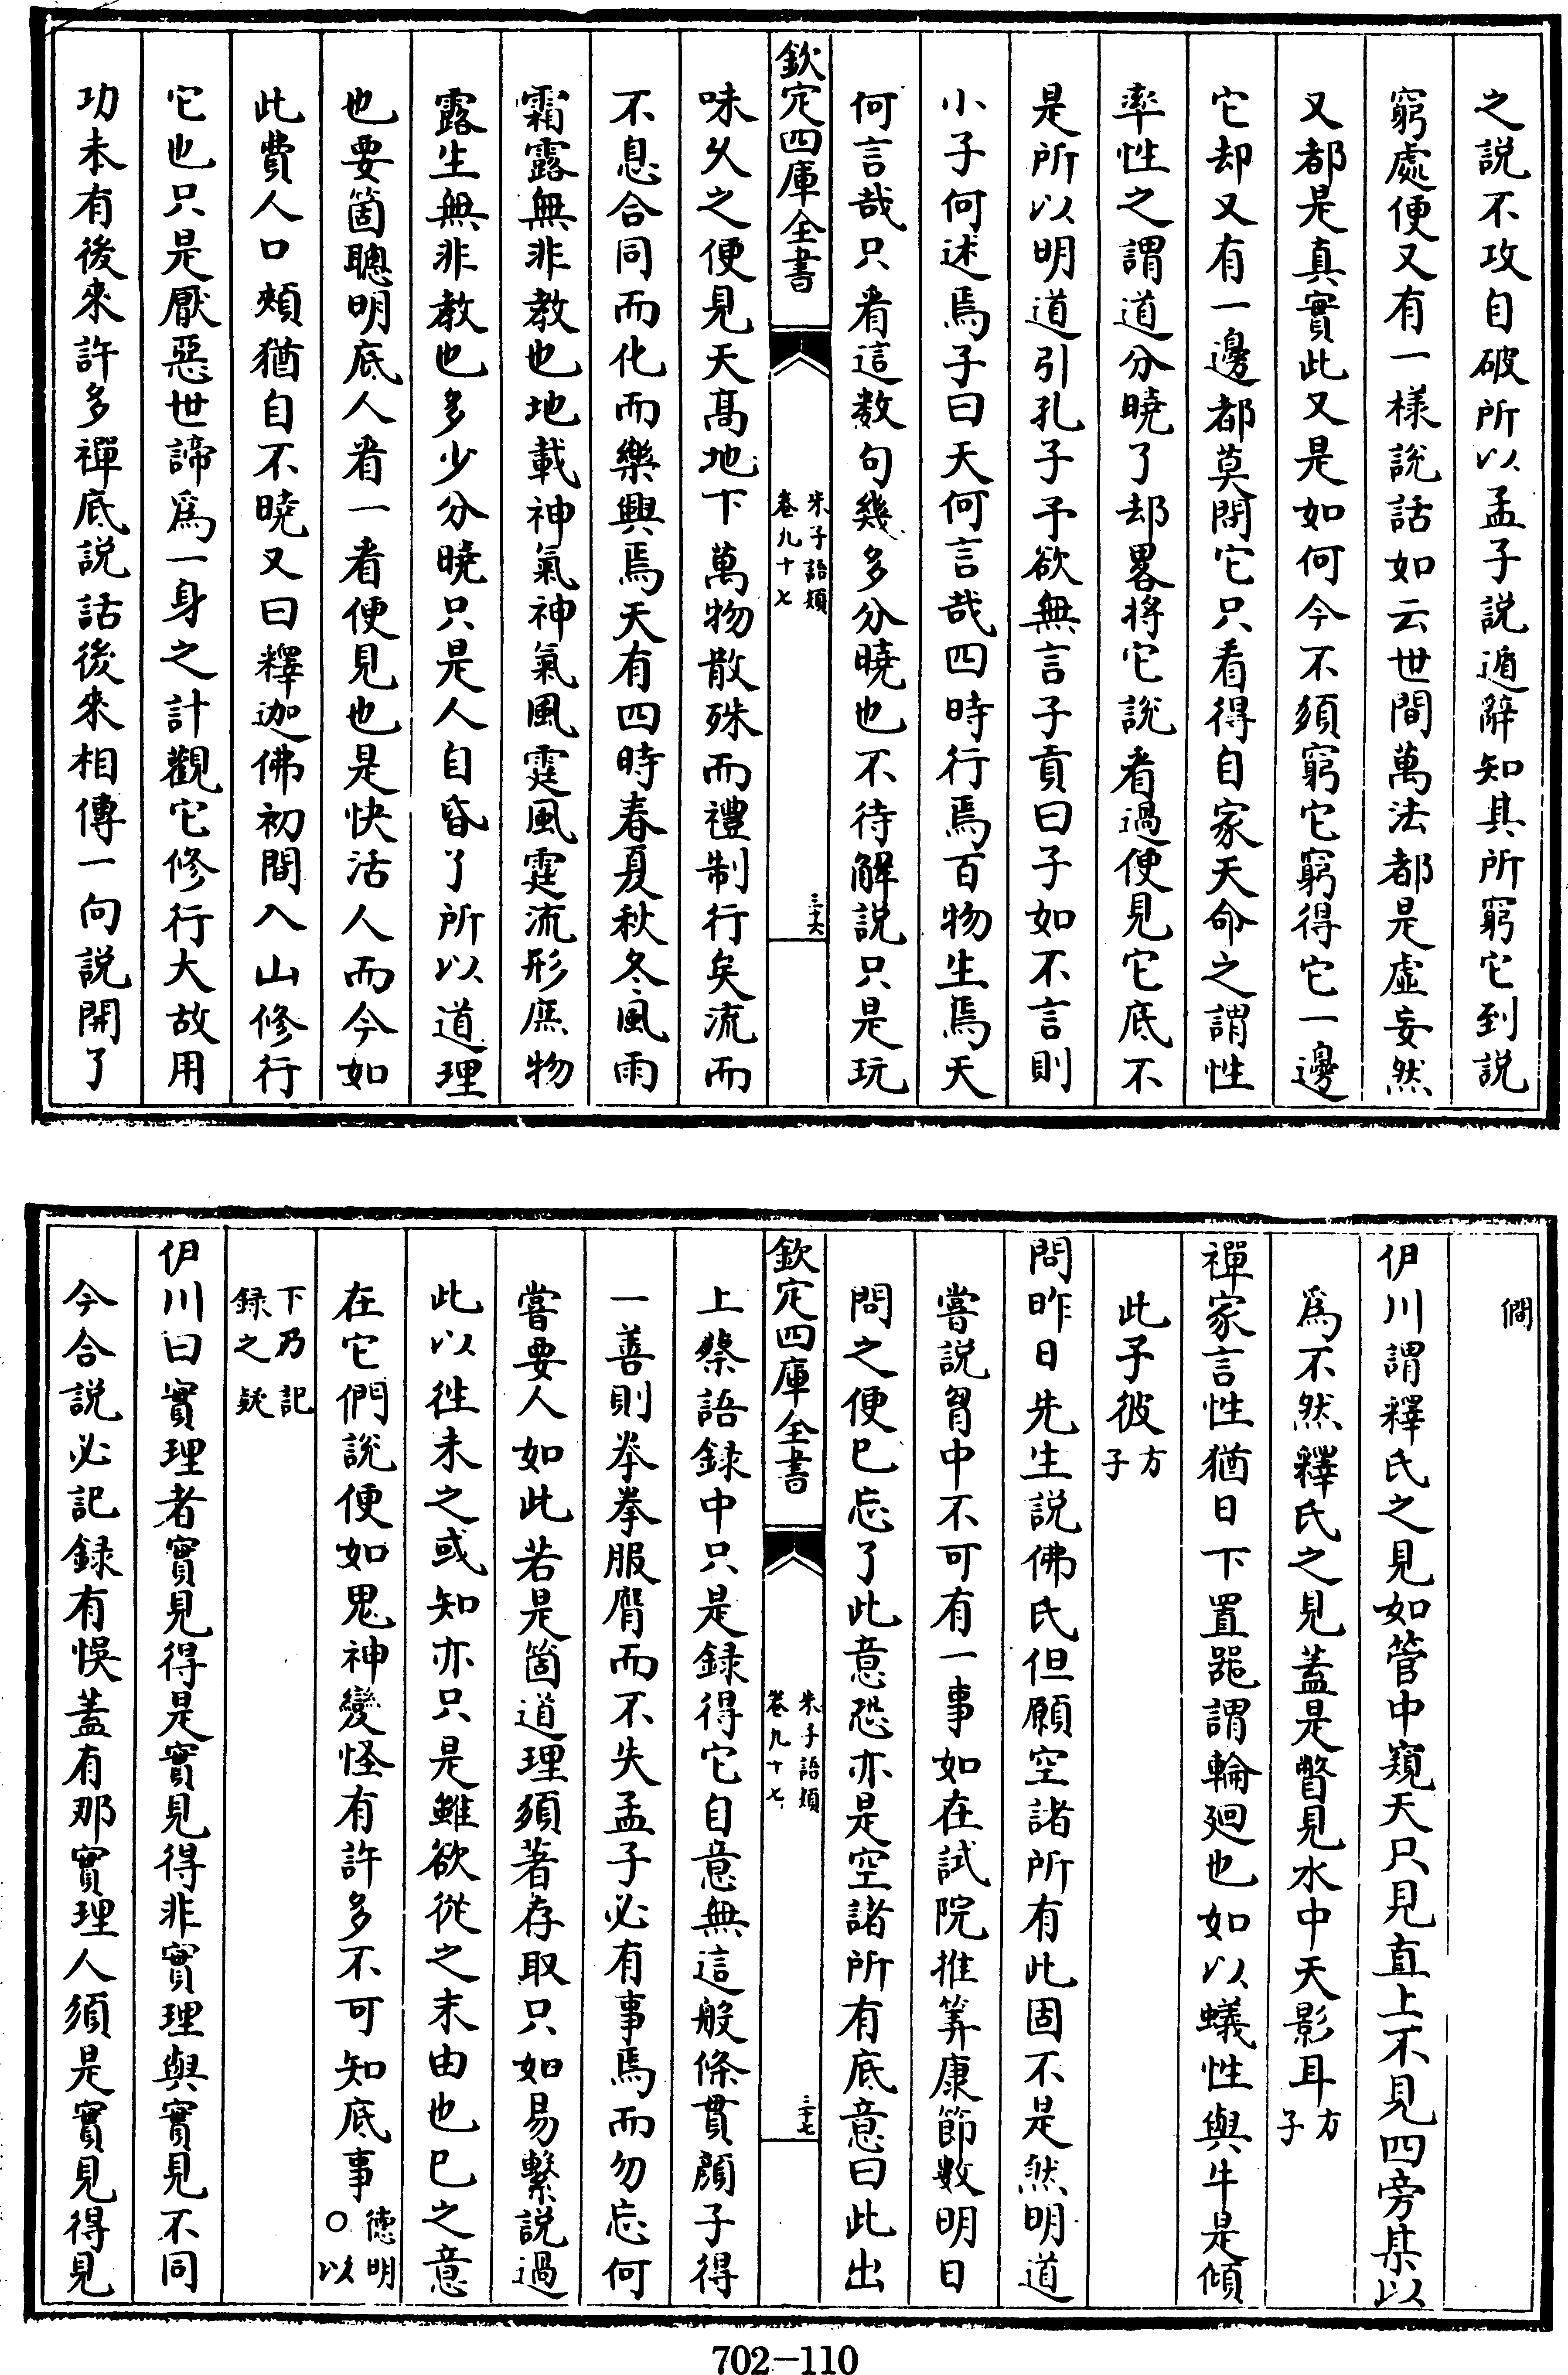 之説不攻自破所以孟子説遁辭知其所窮它到説
窮處便又有一様説話如云世間萬法都是虚妄然
又都是真實此又是如何今不須窮它窮得它一邊
它却又有一邊都莫問它只看得自家天命之謂性
率性之謂道分曉了却畧將它説看過便見它底不
是所以明道引孔子予欲無言子貢曰子如不言則
小子何述焉子曰天何言哉四時行焉百物生焉天
何言哉只看這数句幾多分曉也不待解説只是玩
欽定四庫全書
朱子語類
卷九十七
三十六
味久之便見天髙地下萬物散殊而禮制行矣流而
不息合同而化而樂興焉天有四時春夏秋冬風雨
霜露無非教也地載神氣神氣風霆風霆流形庶物
露生無非教也多少分曉只是人自昏了所以道理
也要箇聰明底人看一看便見也是快活人而今如
此費人口頰猶自不曉又曰釋迦佛初間入山修行
它也只是厭惡世諦為一身之計觀它修行大故用
功未有後來許多禪底説話後來相傳一向説開了
僩
伊川謂釋氏之見如管中窺天只見直上不見四旁某以
為不然釋氏之見蓋是瞥見水中天影耳方子
禪家言性猶日下置器謂輪廻也如以蟻性與牛是傾
此子彼方子
問昨日先生説佛氏但願空諸所有此固不是然明道
嘗説胷中不可有一事如在試院推筭康節數明日
問之便已忘了此意恐亦是空諸所有底意曰此出
欽定四庫全書
朱子語類
卷九十七
三十七
上蔡語録中只是録得它自意無這般條貫顔子得
一善則拳拳服膺而不失孟子必有事焉而勿忘何
嘗要人如此若是箇道理須著存取只如易繫説過
此以徃未之或知亦只是雖欲從之末由也已之意
在它們説便如鬼神變怪有許多不可知底事德明○以
下乃記録之疑
伊川曰實理者實見得是實見得非實理與實見不同
今合説必記録有悞蓋有那實理人須是實見得見
702-110